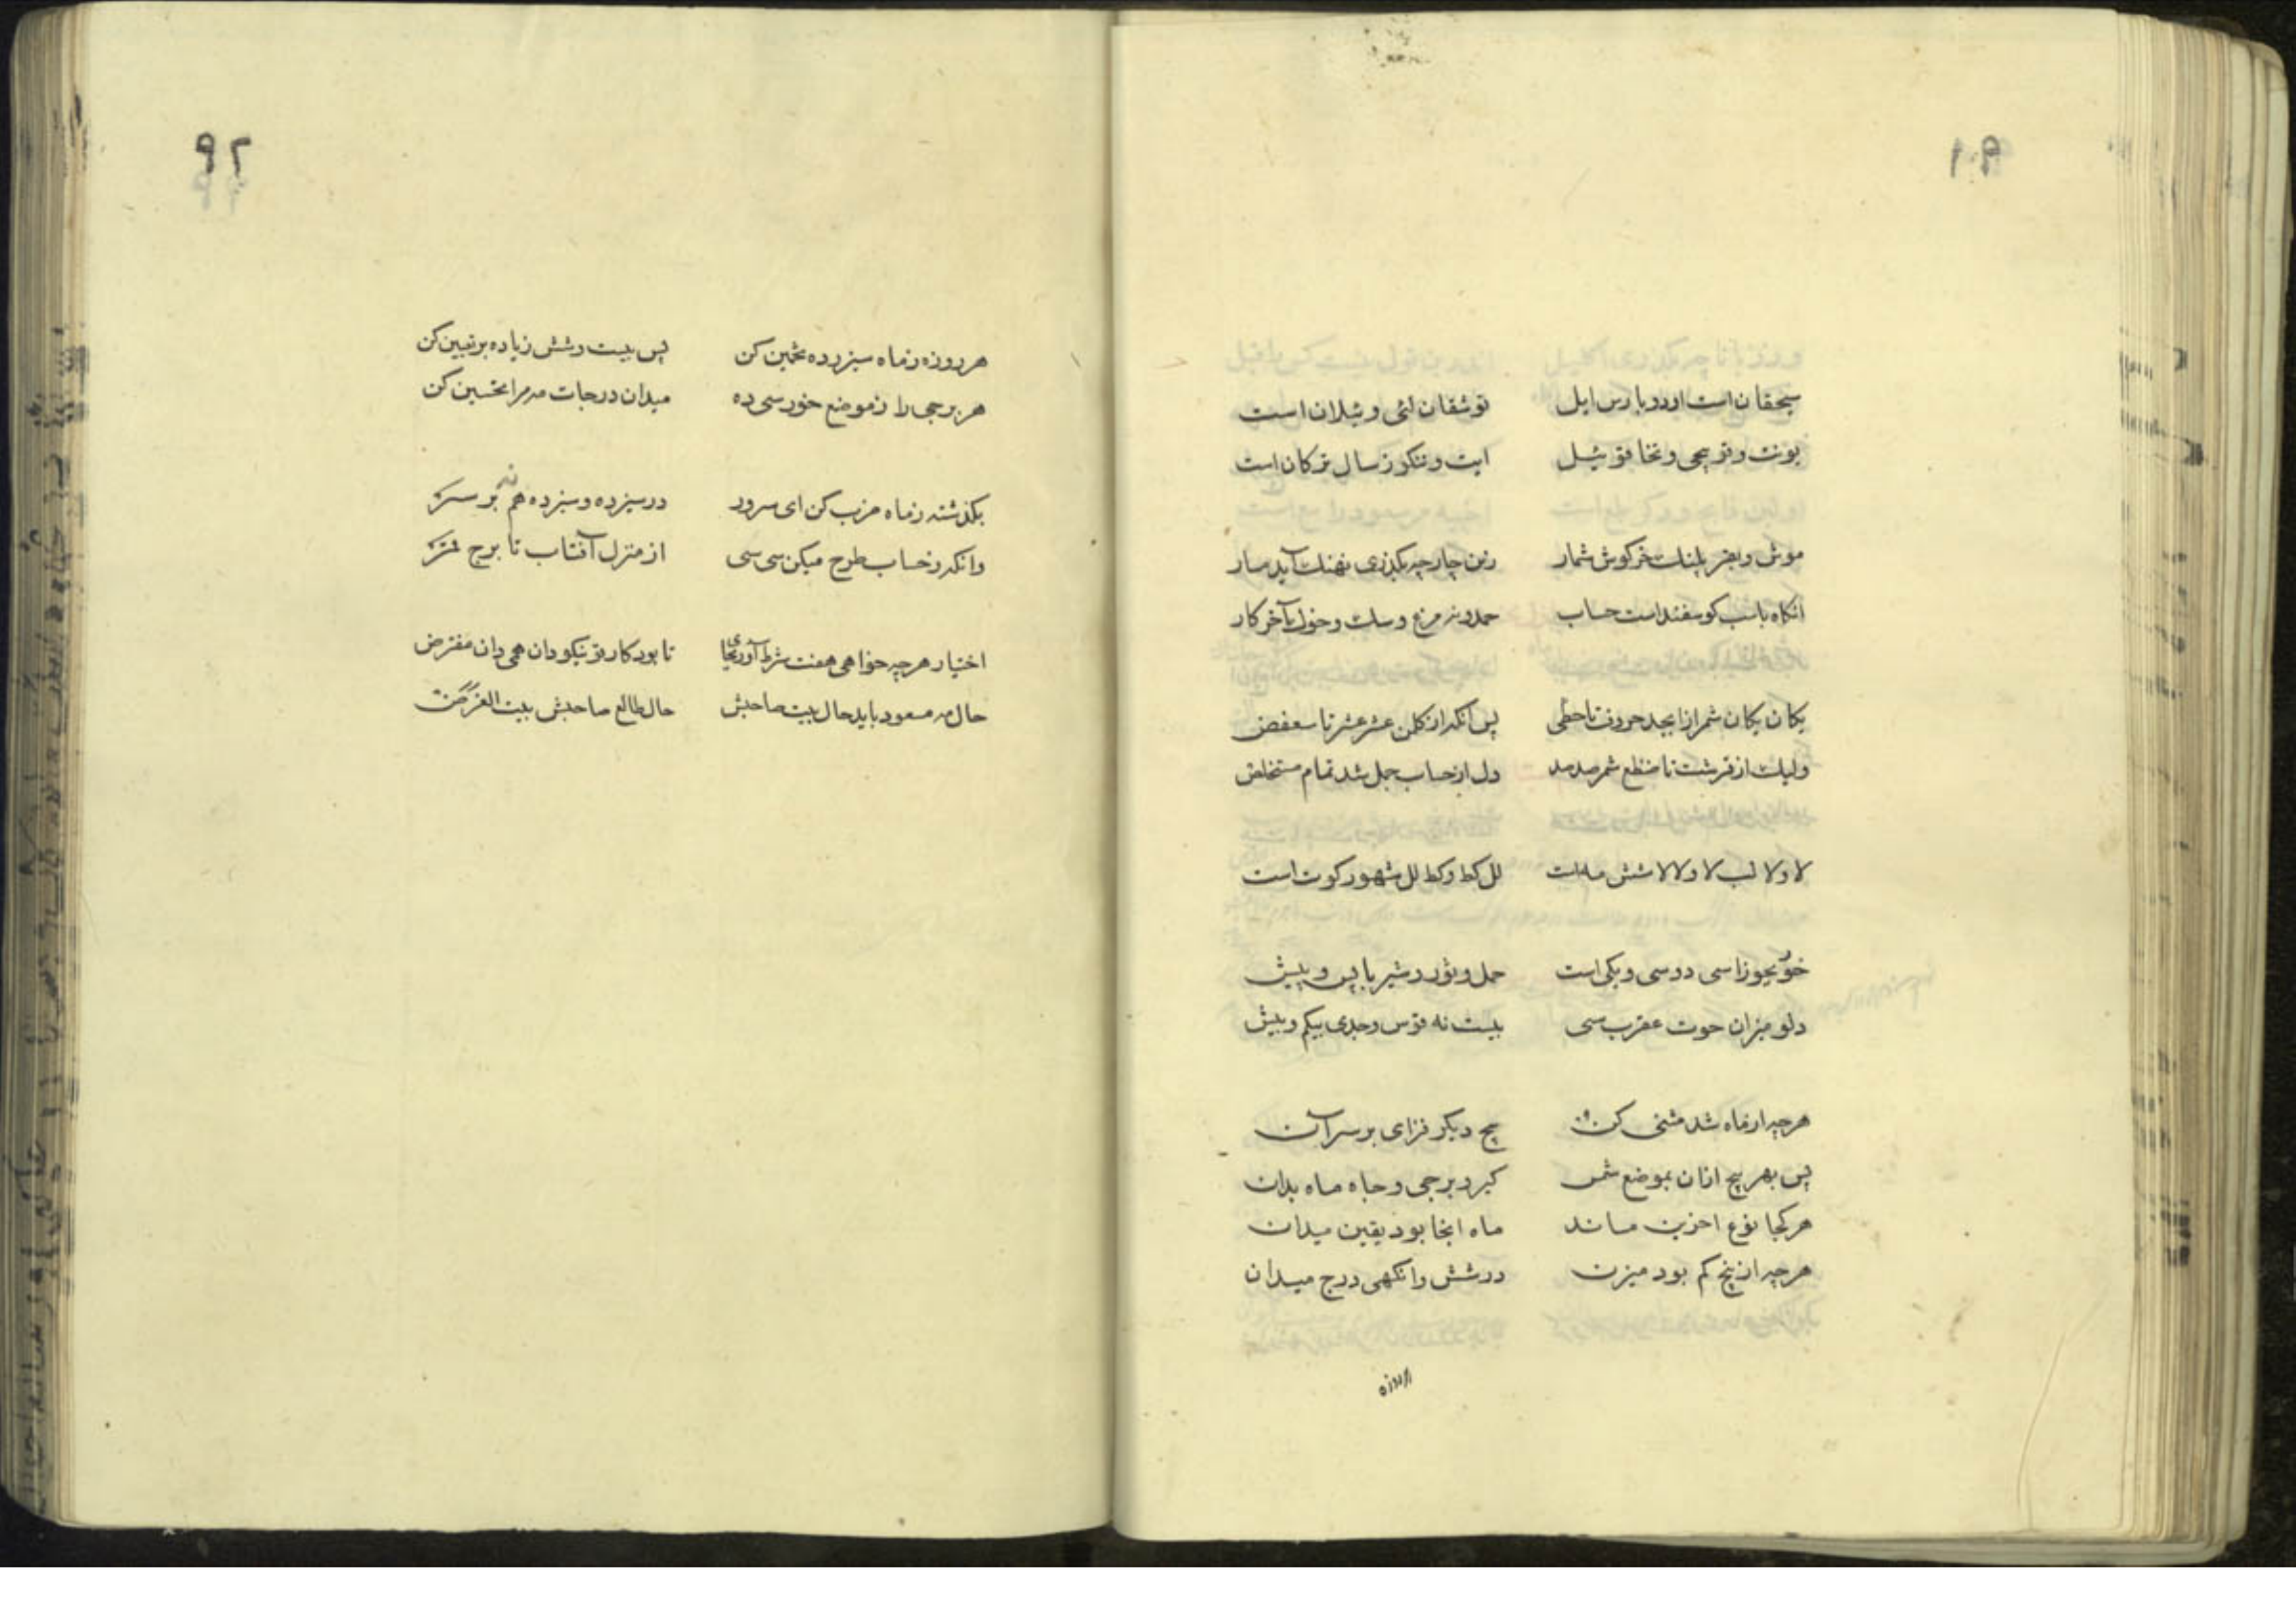 ۹۱
سیچقان است اود و بارس ایل توشقان لئی و ئیلان است
یونت و قوچی و تخاقو ئیل ایت و تنکوز سال ترکان است
موش و بقر پلنک خرکوش شمار زین چار چه بکذری نهنک آید مار
انکاه باسب کوسفند است حساب حمدونه مرغ و سک و خوک آخر کار
یکان یکان شمر از ابجد حروف تا حطی پس آنکه از کلمن عشر عشر تا سعفص
ولیک از قرشت تا ضظغ شمر صد صد دل از حساب جمل شد تمام مستخلص
لا و لا لب لا و لا لا شش مه است لل کط و کط لل شهور کوته است
خور بجوزا سی دو سی و یکی است حمل و ثور و شیر با پس و پیش
دلو میزان حوت عقرب سی بیست نه قوس و جدی بیکم و بیش
هرچه از ماه شد مثنی کن پنج دیگر فزای بر سر آن
پس بهر پنج از آن بموضع شمس کیر د برجی و جاه ماه بدان
هرکجا نوع اخرین ماند ماه انجا بود یقین میدان
هرچه از پنج کم بود میزن در شش وانکهی درج میدان
هرروزه
۹۲
هرروزه زماه سیزده تخمین کن پس بیست و شش زیاده بر تعیین کن
هر برجی را زموضع خور سی ده میدان درجات مه مرا تحسین کن
بکذشته زماه ضرب کن ای سرور در سیزده و سیزده هم نه بر سر
وانکه زحساب طرح میکن سی سی از منزل آفتاب تا برج قمر
اختیار هرچه خواهی هفت شرط آور بجای تا بود کار تو نیکو دان همی دان مفترض
حال مه مسعود باید حال بیت صاحبش حال طالع صاحبش بیت الغرض